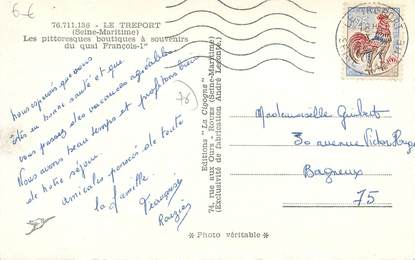 6 €
76.711.136 - LE TREPORT
(Seine-Maritime)
Les pittoresques boutiques à souvenirs
du quai François-1er
nous espérons que vous
êtes en bonne santé et que
vous passez des vacances agréables
Nous avons beau temps et profitons bien
de notre séjour.
amicales pensées de toute
la famille.
Françoise
76
Editions "La Cigogne"
74, rue aux Ours - ROUEN (Seine-Maritime)
(Exclusivité de fabrication André Leconte)
* Photo véritable *
Mademoiselle Guibert
30 avenue Victor Hugo
Bagneux
75